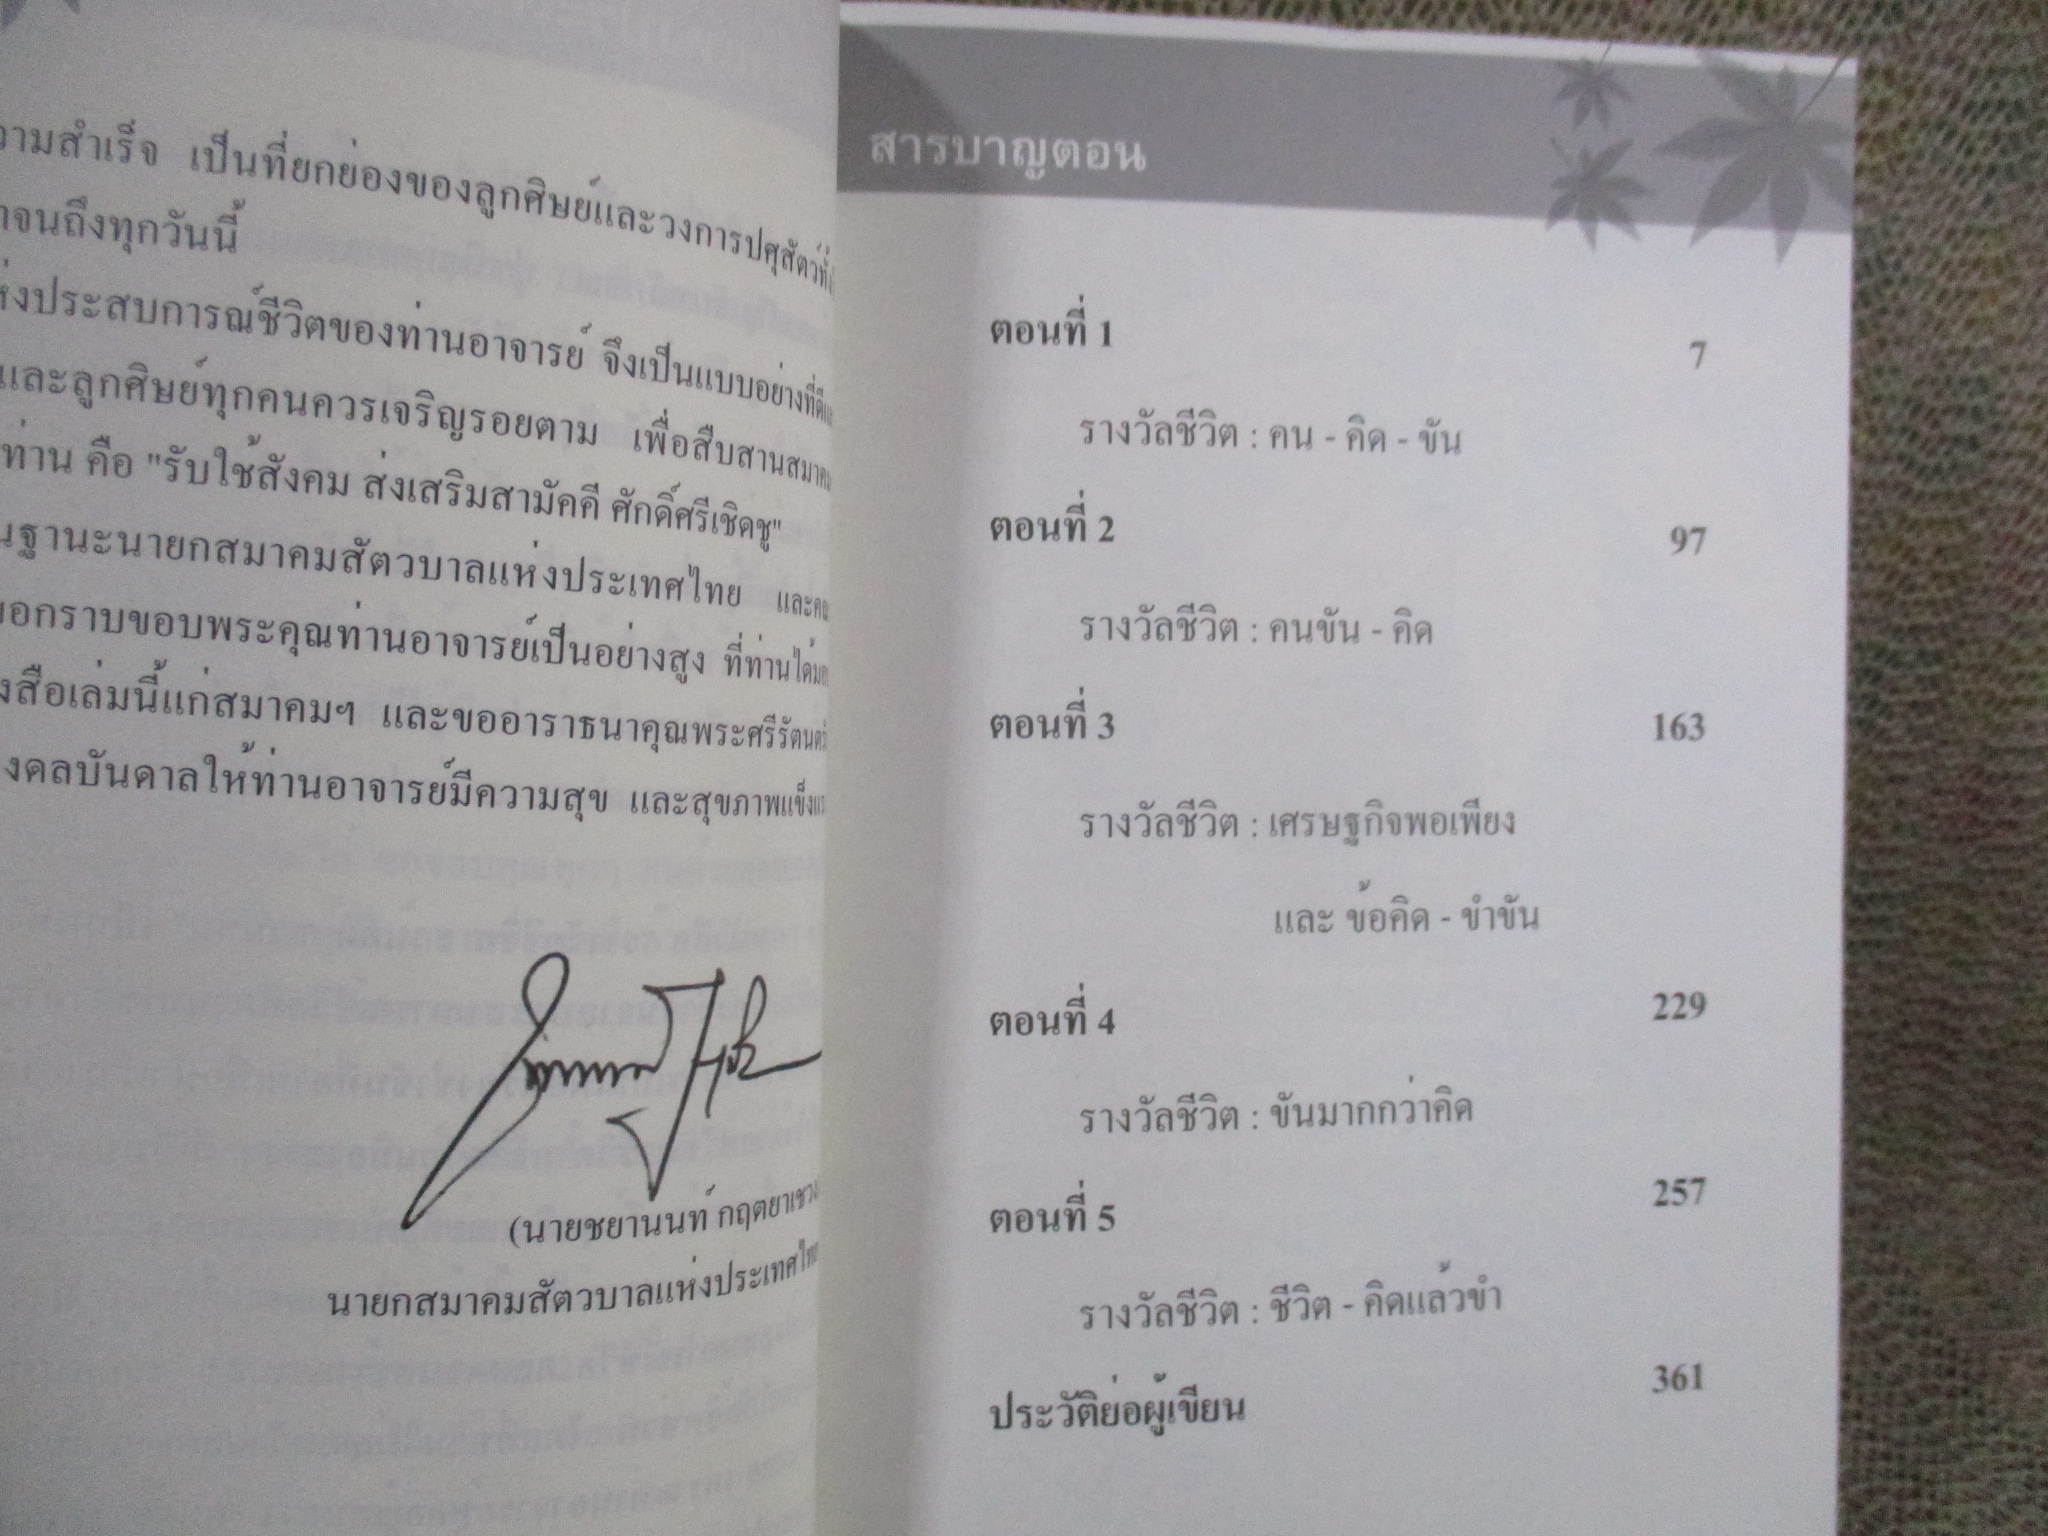 วามสำเร็จ เป็นที่ยกย่องของลูกศิษย์และวงการปศุสัตว์
จนถึงทุกวันนี้
ประสบการณ์ชีวิตของท่านอาจารย์ จึงเป็นแบบอย่างที่ดี
และลูกศิษย์ทุกคนควรเจริญรอยตาม เพื่อสืบสานสมาคม
ท่าน คือ "รับใช้สังคม ส่งเสริมสามัคคี ศักดิ์ศรีเชิดชู"
นฐานะนายกสมาคมสัตวบาลแห่งประเทศไทย และคณ
ขอกราบขอบพระคุณท่านอาจารย์เป็นอย่างสูง ที่ท่านได้มอ
งสือเล่มนี้แก่สมาคมฯ และขออาราธนาคุณพระศรีรัตนตร
งดลบันดาลให้ท่านอาจารย์มีความสุข และสุขภาพแข็งแร
(นายชยานนท์ กฤตยาเชวง
นายกสมาคมสัตวบาลแห่งประเทศไทย
สารบาญตอน
ตอนที่ 1 7
รางวัลชีวิต : คน - คิด - ขัน
ตอนที่ 2 97
รางวัลชีวิต : คนขัน - คิด
ตอนที่ 3 163
รางวัลชีวิต : เศรษฐกิจพอเพียง
และ ข้อคิด - ขำขัน
ตอนที่ 4 229
รางวัลชีวิต : ขันมากกว่าคิด
ตอนที่ 5 257
รางวัลชีวิต : ชีวิต - คิดแล้วขำ
ประวัติย่อผู้เขียน 361